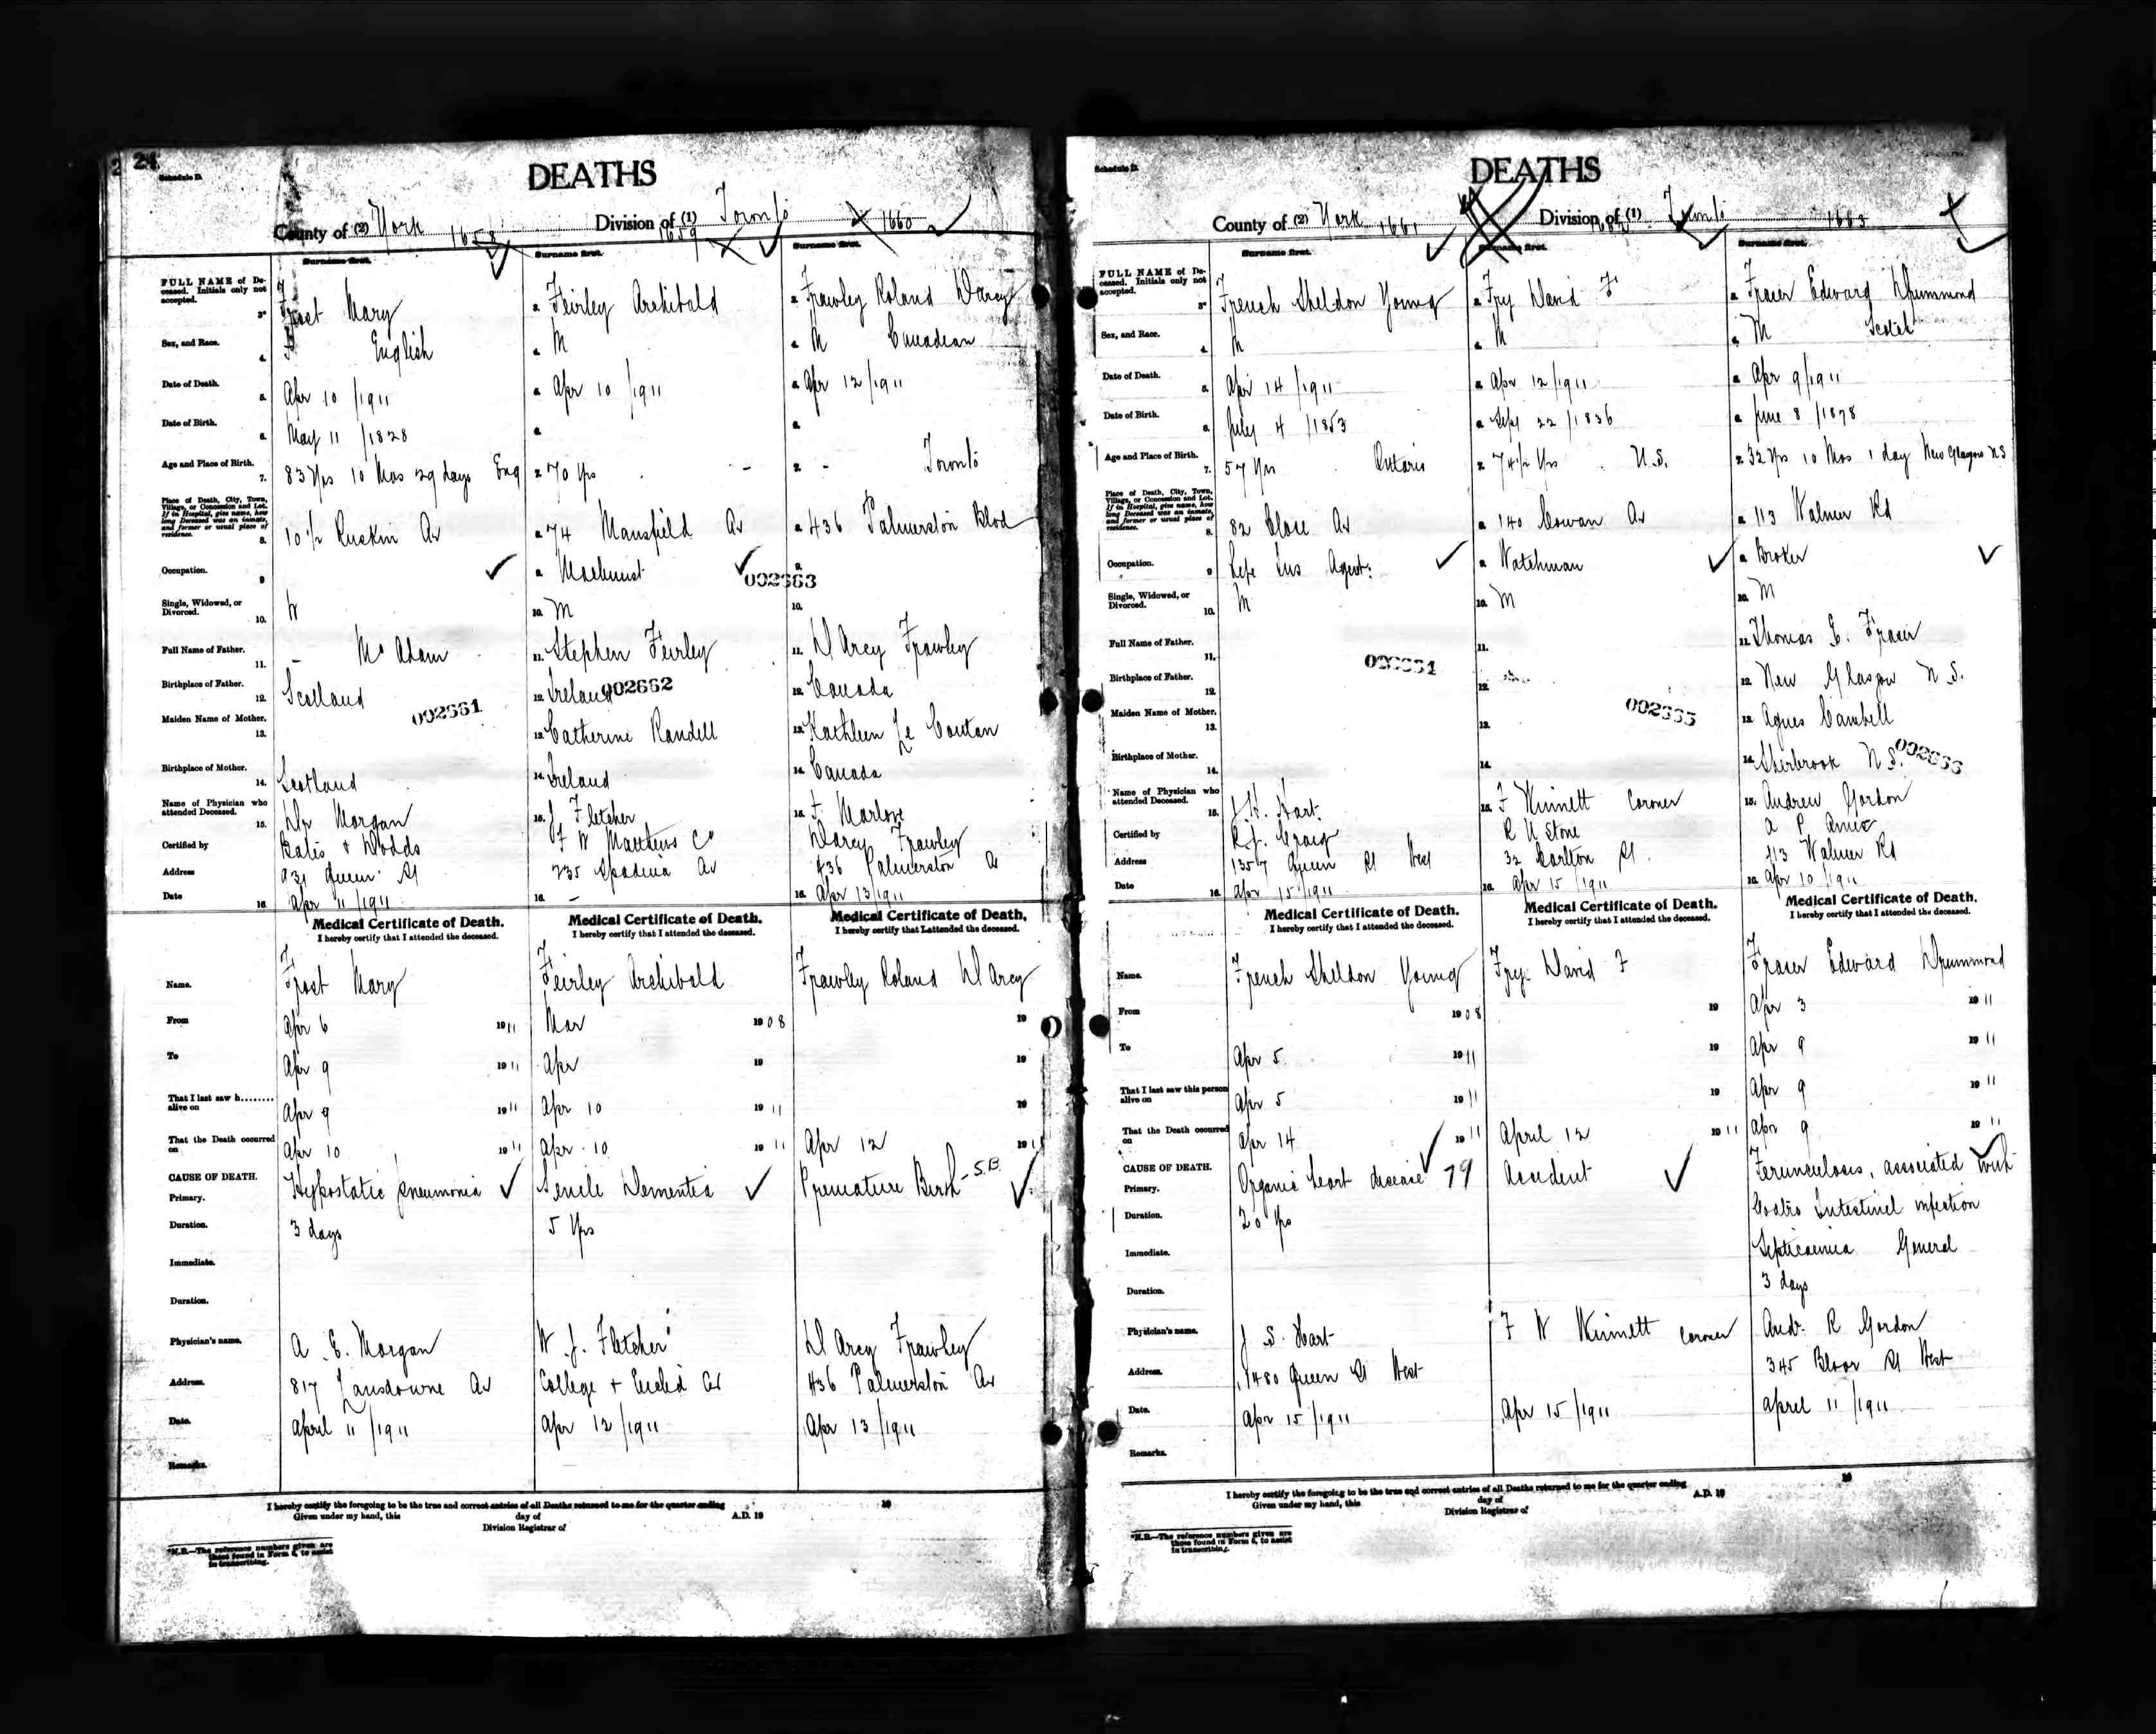 24
Schedule D.
DEATHS
County of (2) York Division of (1) Toronto
1658 1659 1660
Surname first. Surname first. Surname first.
FULL NAME of Deceased. Initials only not accepted. 3. Frost Mary Feirley Archibald Frawley Roland D'Arcy
Sex, and Race. 4. F English M M Canadian
Date of Death. 5. Apr 10 /1911 Apr 10 /1911 Apr 12 /1911
Date of Birth. 6. May 11 /1828
Age and Place of Birth. 7. 83 Yrs 10 Mos 29 days Eng 70 Yrs - - Toronto
Place of Death, City, Town, Village, or Concession and Lot. If in Hospital, give name, how long Deceased was an inmate, and former or usual place of residence. 8. 10 1/2 Ruskin Av 74 Mansfield Av 436 Palmerston Blvd
Occupation. 9 Machinist 002663
Single, Widowed, or Divorced. 10. W 10. M 10.
Full Name of Father. 11. - McAdam 11. Stephen Feirley 11. D'Arcy Frawley
Birthplace of Father. 12. Scotland 12. Ireland 002662 12. Canada
002661
Maiden Name of Mother. 13. 13. Catherine Randell 13. Kathleen Le
Birthplace of Mother. 14. Scotland 14. Ireland 14. Canada
Name of Physician who attended Deceased. 15. Dr Morgan 15. J Fletcher 15. F. Marlow
Certified by Bates & Dodds F W Matthews Co D'arcy Frawley
Address 931 Queen St 235 Spadina Av 436 Palmerston Av
Date 16. Apr 11 /1911 16. - 16. Apr 13/1911
Medical Certificate of Death. Medical Certificate of Death. Medical Certificate of Death.
I hereby certify that I attended the deceased. I hereby certify that I attended the deceased. I hereby certify that I attended the deceased.
Name. Frost Mary Feirley Archibald Frawley Roland D'Arcy
From Apr 6 1911 Mar 1908 19
To Apr 9 1911 Apr 19 19
That I last saw h........ alive on Apr 9 1911 Apr 10 1911 19
That the Death occurred on Apr 10 1911 Apr 10 1911 Apr 12 1911
CAUSE OF DEATH.
Primary. Hypostatic pneumonia Senile Dementia Premature Birth - S.B.
Duration. 3 days 5 Yrs
Immediate.
Duration.
Physician's name. A. E. Morgan W. J. Fletcher D'Arcy Frawley
Address. 817 Lansdowne Av College + Euclid Av 436 Palmerston Av
Date. April 11 /1911 Apr 12 /1911 Apr 13 /1911
Remarks.
I hereby certify the foregoing to be the true and correct entries of all Deaths returned to me for the quarter ending 19
Given under my hand, this day of A.D. 19
Division Registrar of
*N.B.—The reference numbers given are those found in Form 6, to assist in transcribing.
Schedule D.
DEATHS
County of (2) York 1661 Division of (1) Toronto 1663
Surname first. Surname first. Surname first.
FULL NAME of Deceased. Initials only not accepted. 3. French Sheldon Young Fry David F Fraser Edward Drummond
Sex, and Race. 4. M M M Scotch
Date of Death. 5. Apr 14 /1911 Apr 12 /1911 Apr 9/1911
Date of Birth. 6. July 4 /1853 Sept 22 /1836 June 8 /1878
Age and Place of Birth. 7. 57 Yrs Ontario 74 1/2 Yrs U.S. 32 Yrs 10 Mos 1 day New Glasgow N S
Place of Death, City, Town, Village, or Concession and Lot. If in Hospital, give name, how long Deceased was an inmate, and former or usual place of residence. 8. 82 Close Av 140 Cowan Av 113 Walmer Rd
Occupation. 9 Life Ins Agent. Watchman Broker
Single, Widowed, or Divorced. 10. M 10. M 10. M
Full Name of Father. 11. 11. 11. Thomas G. Fraser
Birthplace of Father. 12. 12. 12. New Glasgow N.S.
Maiden Name of Mother. 13. 13. 13. Agnes Cambell
Birthplace of Mother. 14. 14. 14. Sherbrook N.S.
Name of Physician who attended Deceased. 15. J. S. Hart. 15. F Winnett Coroner 15. Andrew Gordon
Certified by R. J. Craig R U Stone
Address 1357 Queen St West 32 Carlton St. 113 Walmer Rd
Date 16. Apr 15 /1911 16. Apr 15 /1911 16. Apr 10 /1911
Medical Certificate of Death. Medical Certificate of Death. Medical Certificate of Death.
I hereby certify that I attended the deceased. I hereby certify that I attended the deceased. I hereby certify that I attended the deceased.
Name. French Sheldon Young Fry David F Fraser Edward Drummond
From 1908 19 Apr 3 1911
To Apr 5 1911 19 Apr 9 1911
That I last saw this person alive on Apr 5 1911 19 Apr 9 1911
That the Death occurred on Apr 14 1911 April 12 1911 Apr 9 1911
CAUSE OF DEATH.
Primary. Organic heart disease 79 Accident Ferunculosis, associated with
Duration. 20 Yrs Gastro Intestinal infection
Immediate. Septicaemia General
Duration. 3 days
Physician's name. J S. Hart F W Winnett Coroner Andr. R Gordon
Address. 1480 Queen St West 345 Bloor St West
Date. Apr 15 /1911 Apr 15 /1911 April 11 /1911
Remarks.
I hereby certify the foregoing to be the true and correct entries of all Deaths returned to me for the quarter ending 19
Given under my hand, this day of A.D. 19
Division Registrar of
*N.B.—The reference numbers given are those found in Form 6, to assist in transcribing.